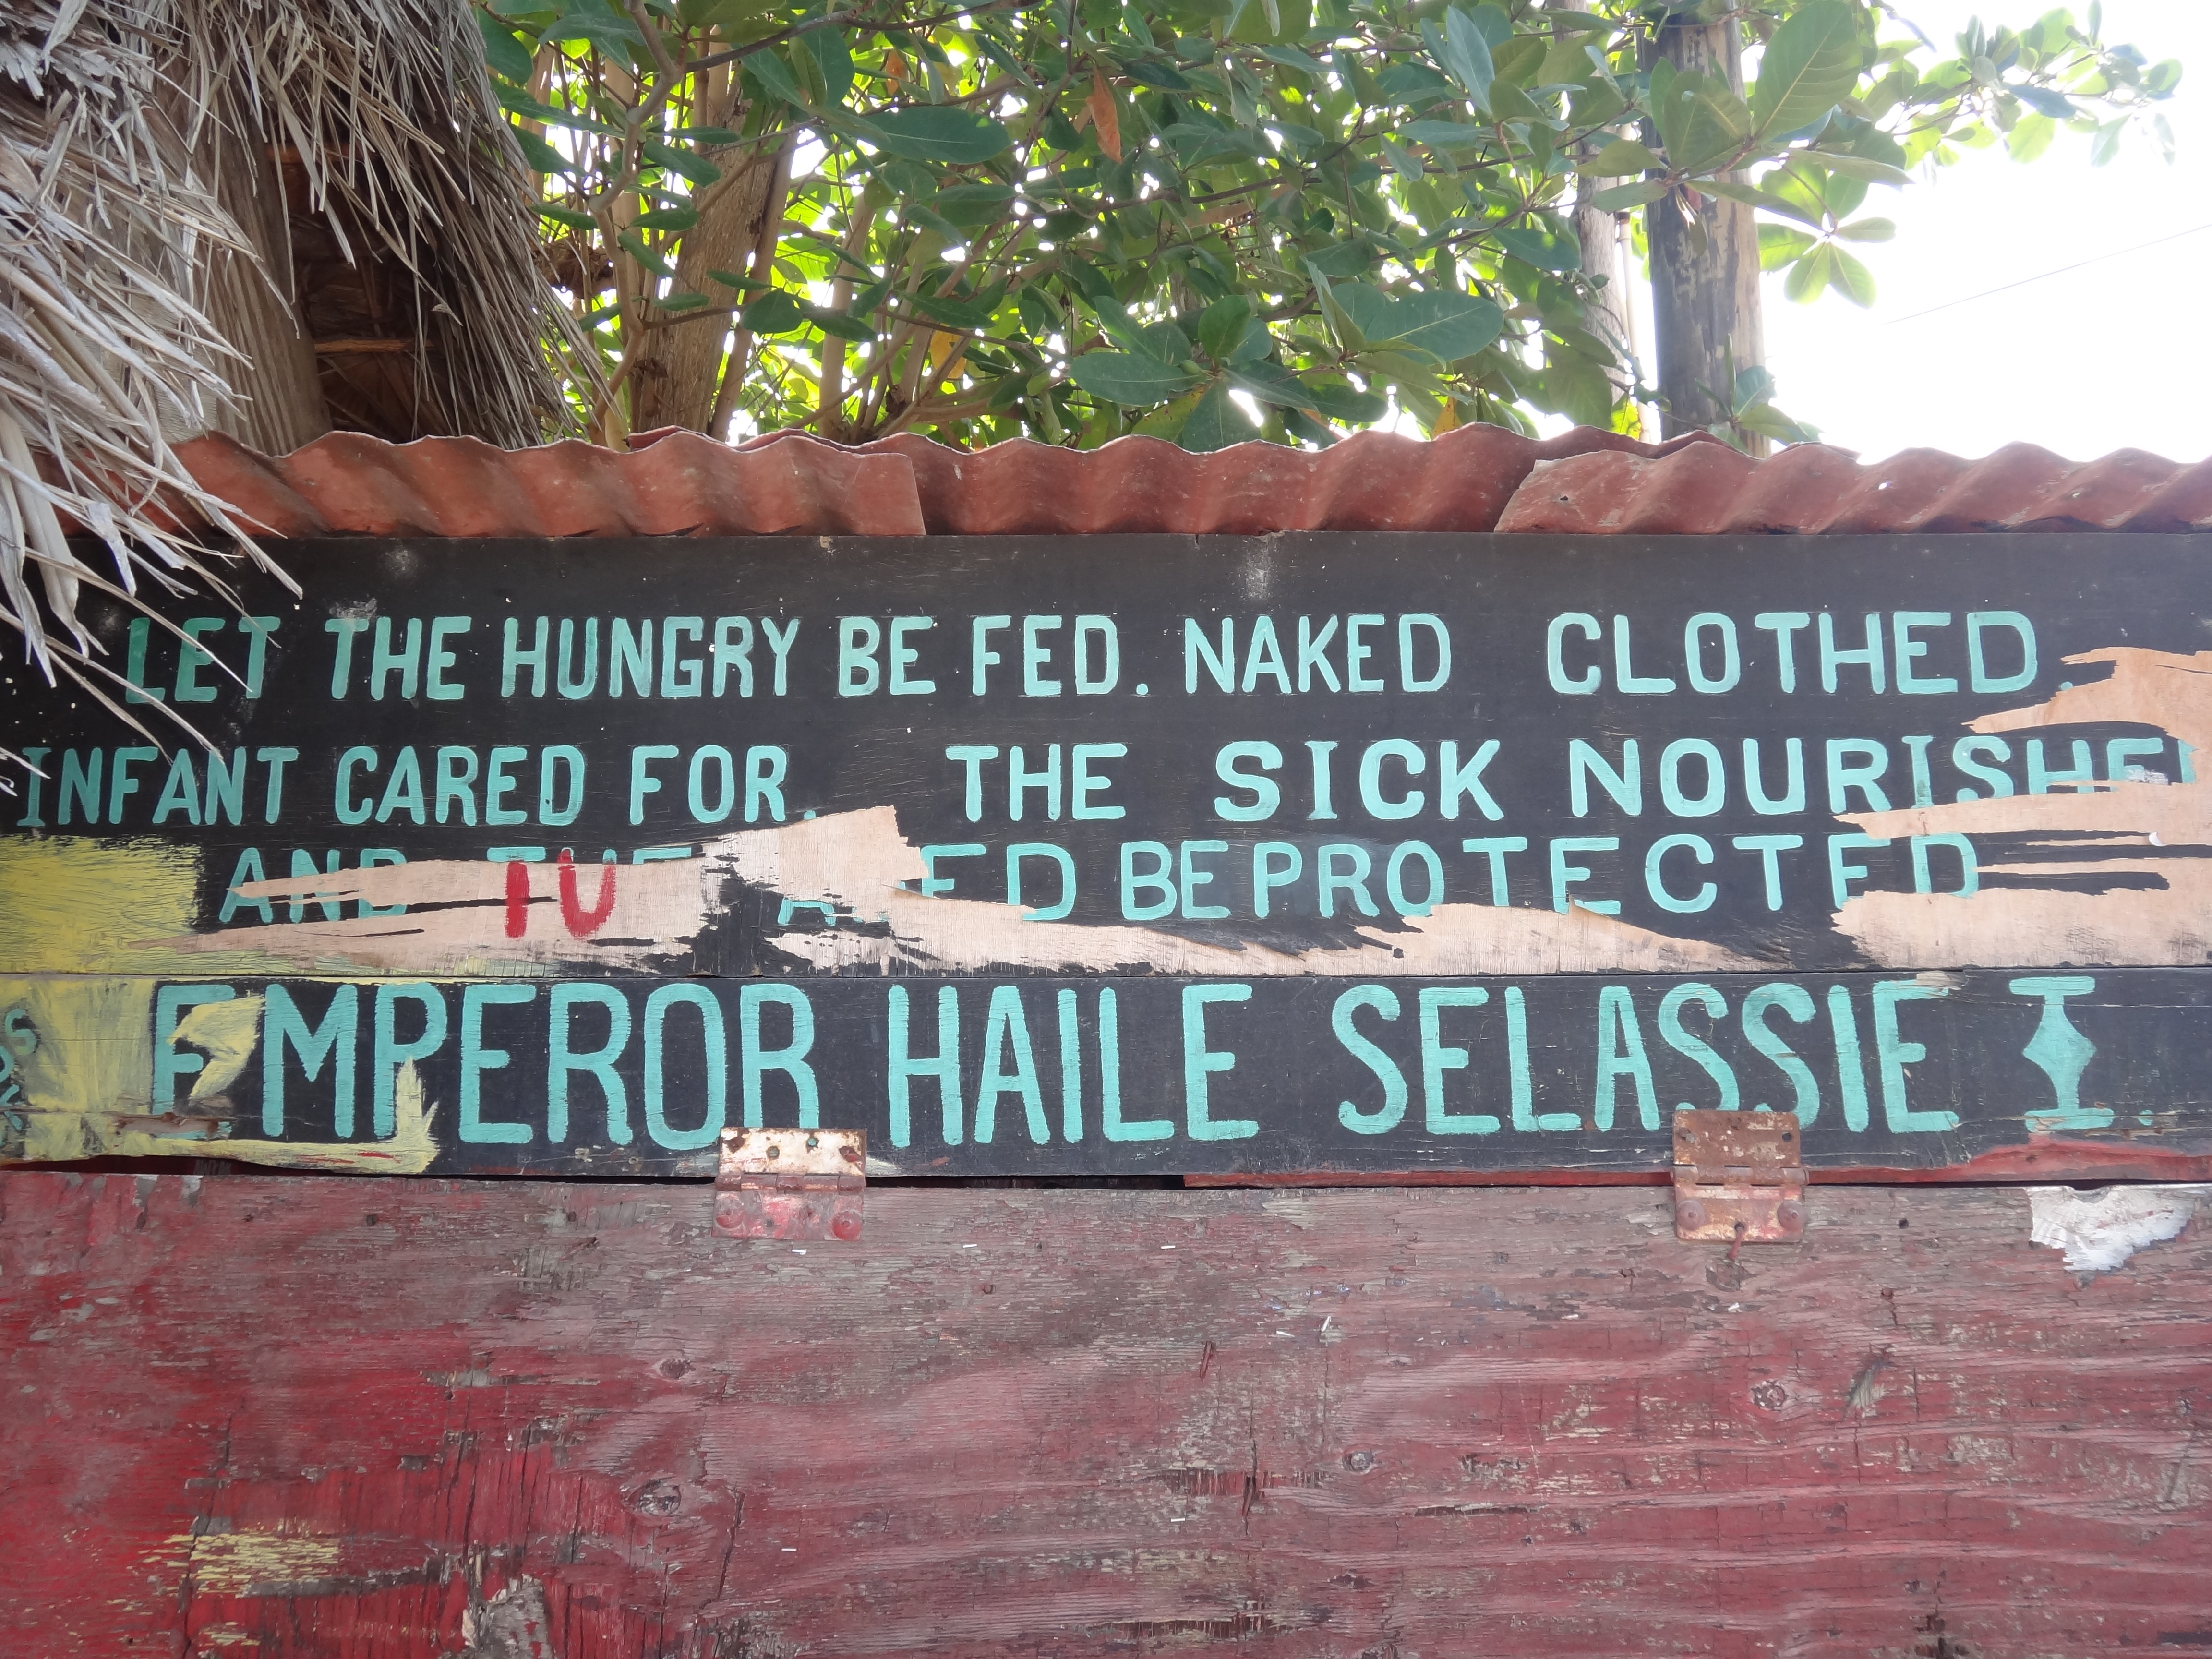 LET THE HUNGRY BE FED. NAKED CLOTHED.
INFANT CARED FOR. THE SICK NOURISHED
AND THE ED BE PROTECTED
TU
EMPEROR HAILE SELASSIE I.